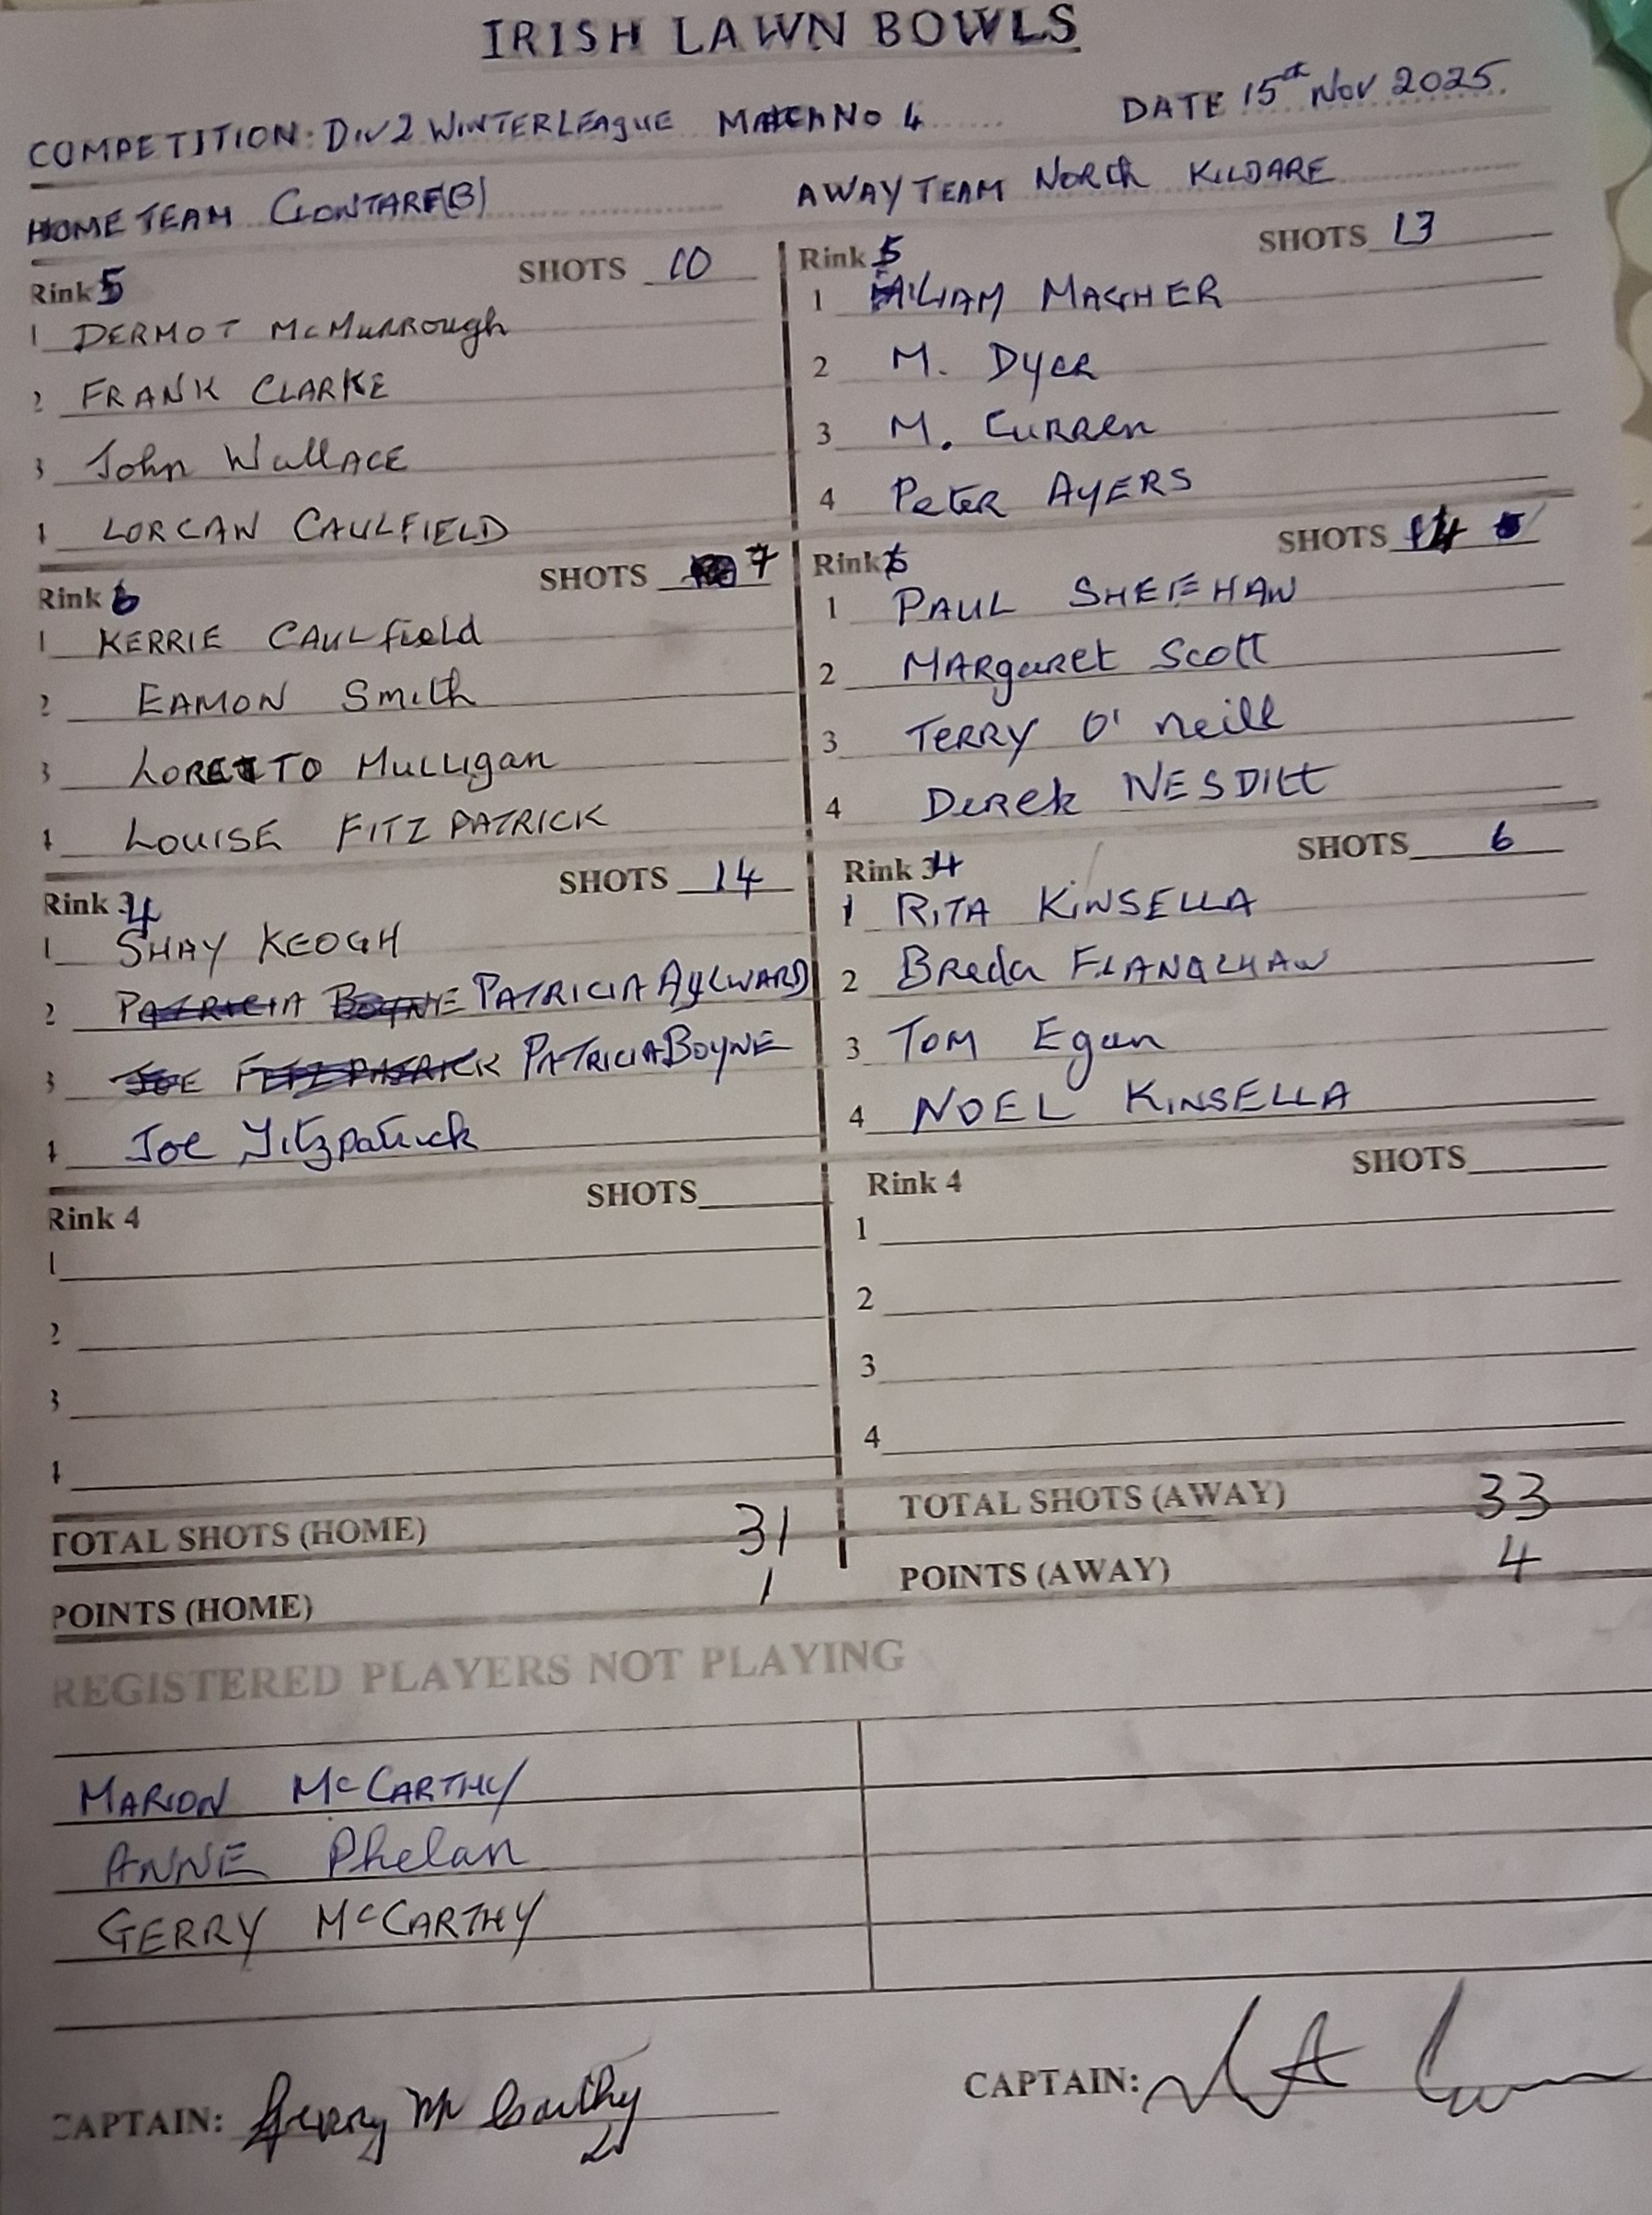 IRISH LAWN BOWLS
COMPETITION: DIV 2 WINTER LEAGUE MATCH NO 4 DATE 15th NOV 2025
HOME TEAM CLONTARF(B) AWAY TEAM NORTH KILDARE
Rink 5 SHOTS 10
1 DERMOT McMURROUGH
2 FRANK CLARKE
3 John WALLACE
4 LORCAN CAULFIELD
Rink 6 SHOTS 7
1 KERRIE CAULfield
2 EAMON Smith
3 LORETTO Mulligan
4 LOUISE FITZPATRICK
Rink 4 SHOTS 14
1 SHAY KEOGH
2 PATRICIA BOYNE PATRICIA AYLWARD
3 JOE FITZPATRICK PATRICIA BOYNE
4 Joe Fitzpatrick
Rink 4 SHOTS
1
2
3
4
TOTAL SHOTS (HOME) 31
POINTS (HOME) 1
Rink 5 SHOTS 13
1 LIAM MAGHER
2 M. Dyer
3 M. Curren
4 Peter AYERS
Rink 6 SHOTS 14
1 PAUL SHEEHAN
2 MARgaret Scott
3 TERRY O' Neill
4 Derek NESDitt
Rink 4 SHOTS 6
1 RITA KINSELLA
2 Breda FLANAGHAN
3 TOM Egan
4 NOEL KINSELLA
Rink 4 SHOTS
1
2
3
4
TOTAL SHOTS (AWAY) 33
POINTS (AWAY) 4
REGISTERED PLAYERS NOT PLAYING
MARION McCARTHY
ANNE Phelan
GERRY McCARTHY
CAPTAIN: Gerry Mc Carthy
CAPTAIN: